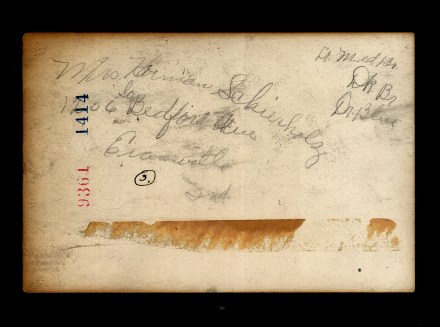 Mrs. Herman Schierholz
1206 Bedford Ave
Evansville
Ind.
Lt Med Br
Dk Br
Dr. Blue
1414
9361
3.